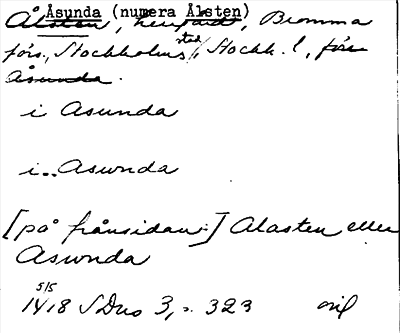 Åsunda (numera Ålsten)
Ålsten, herrgård, Bromma
förs., Stockholms stad, Stockh. l,
Åsunda.
i Asunda
i.. Aswnda
[på frånsidan:] Alasten eller
Aswnda
5/5
1418 SDns 3, s. 323 orig